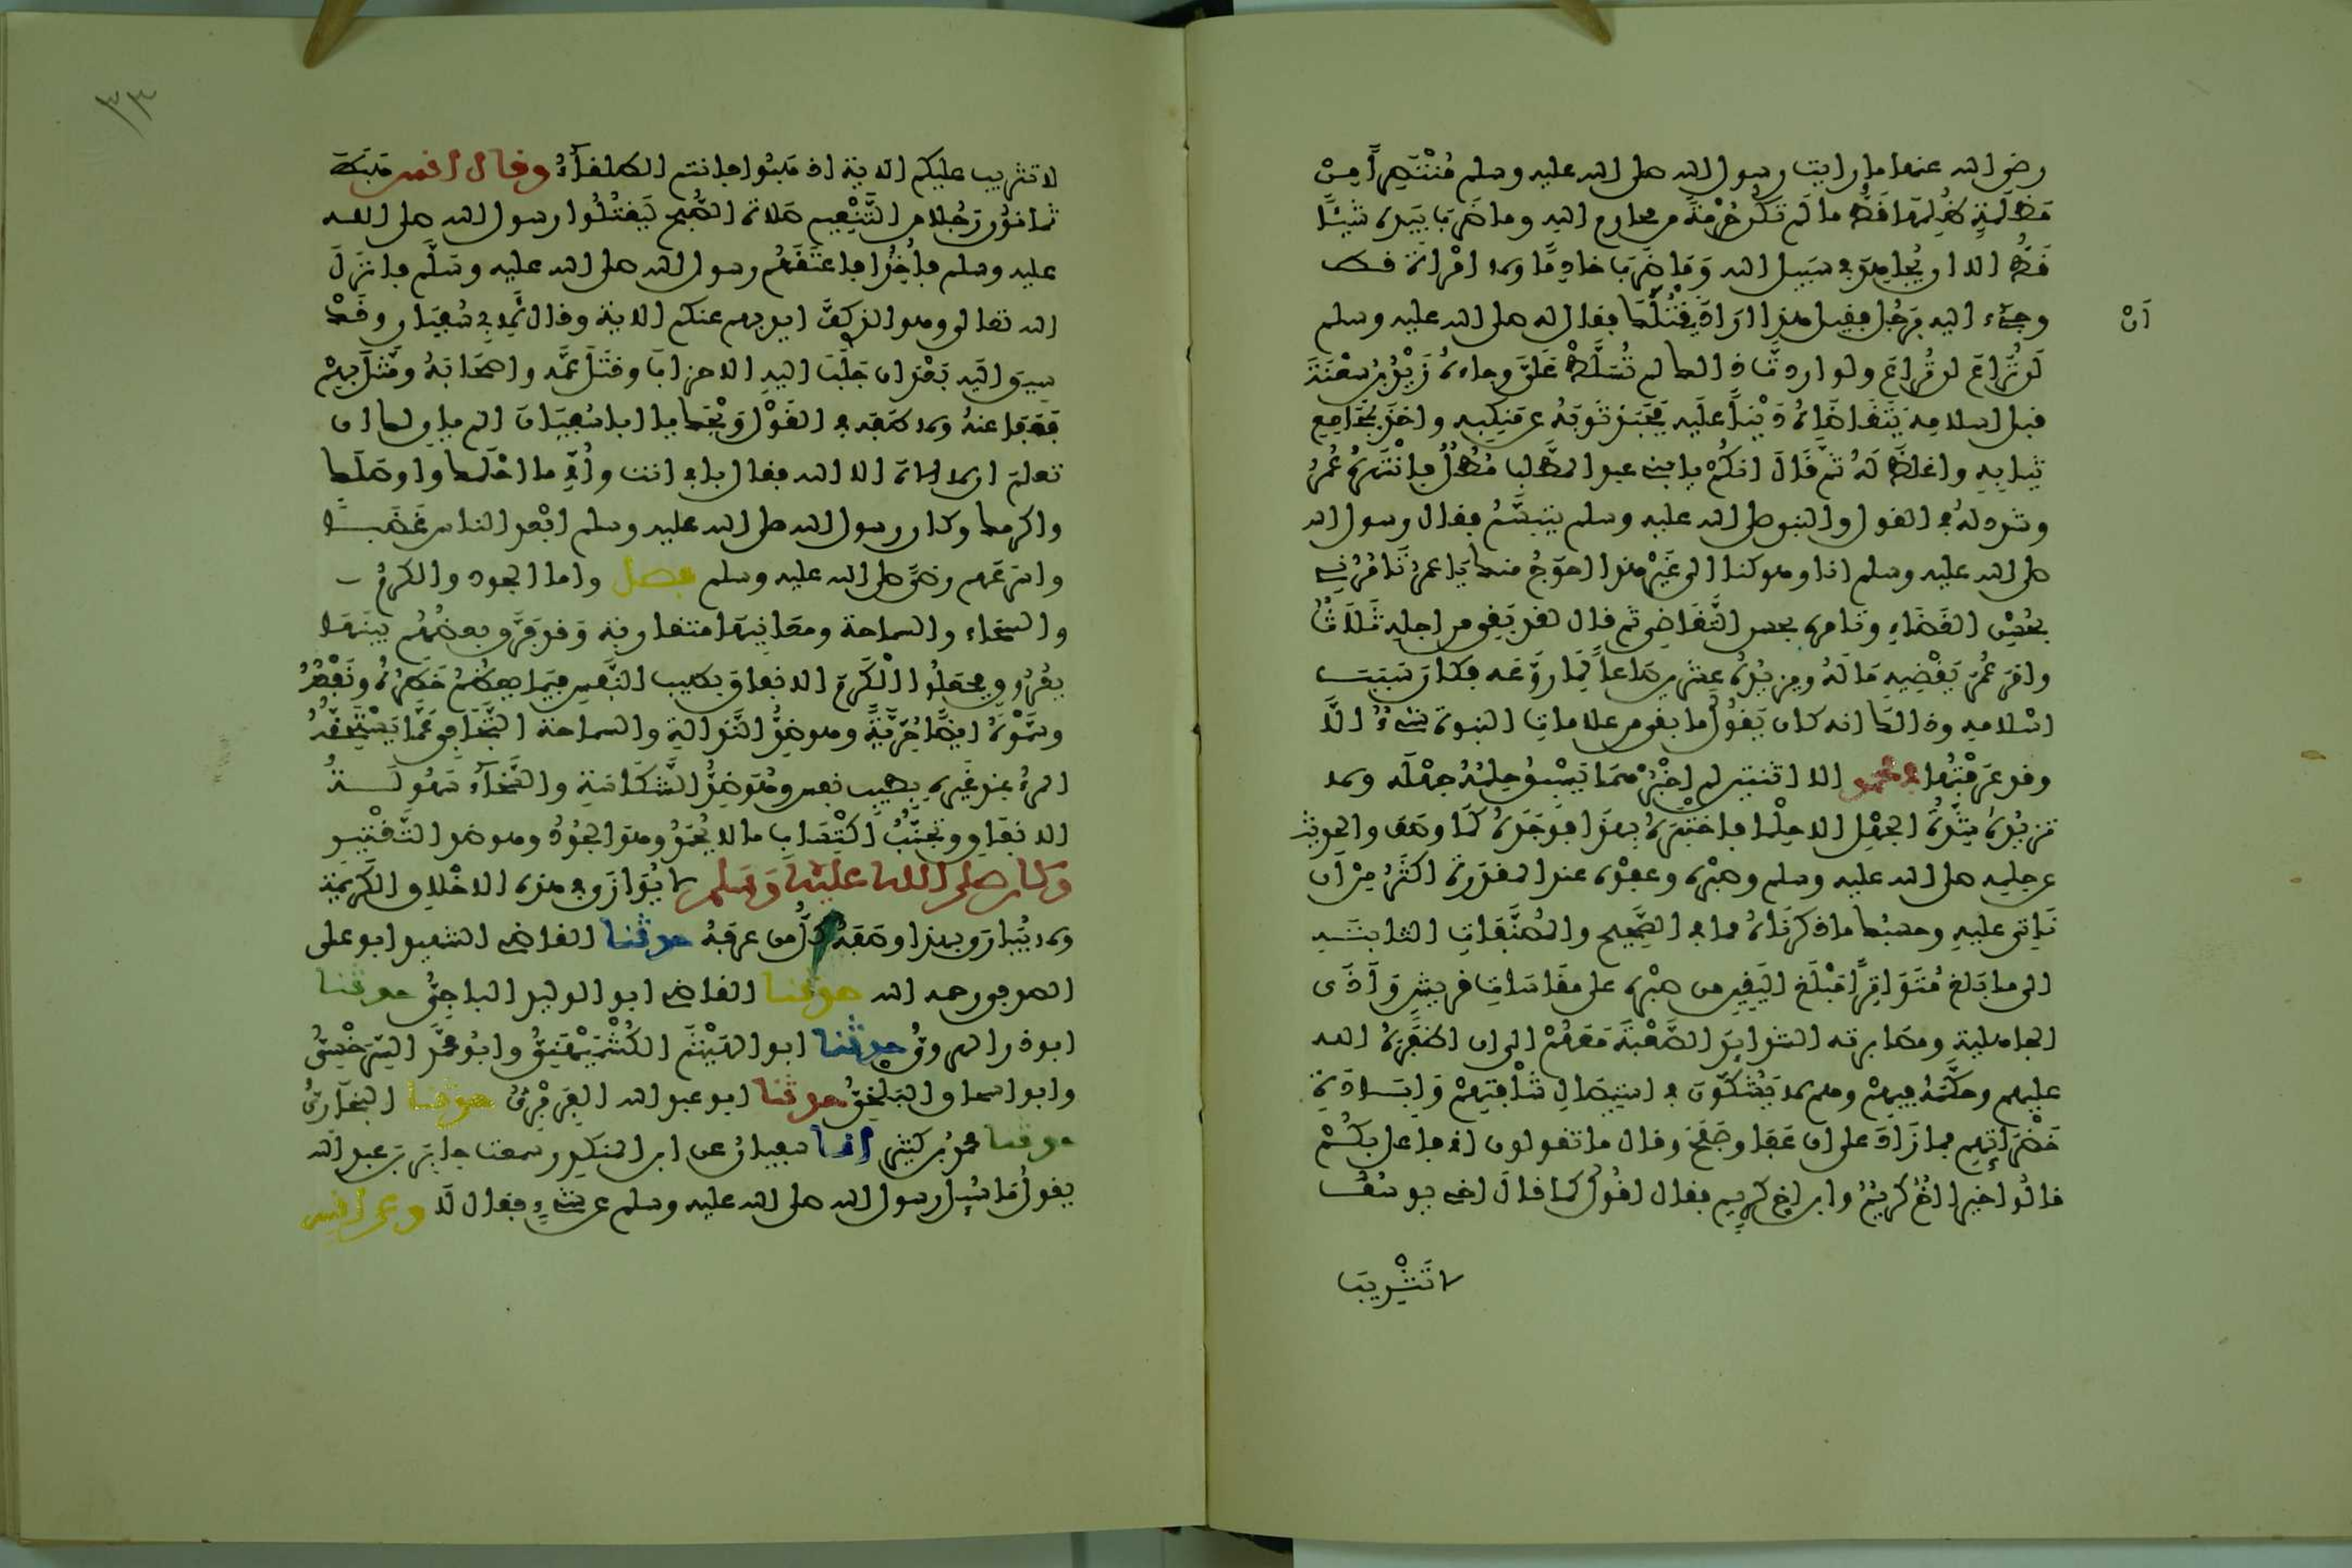 رضي الله عنها ما رايت رسول الله صلى الله عليه وسلم مُنْتَصِراً مِنْ
مَظْلَمَةٍ ظُلِمَهَا قَطُّ ما لَم تَكُن حُرْمَةً من محارم الله وما ضَرَبَ بِيَدِه شَيْئًا
قَطُّ الا ان يُجاهِدَ في سَبِيل الله وَمَا ضَرَبَ خادِمًا ولا امْرَأة قط
وجِيءَ اليه بِرَجُل فقيل هذا ارَادَ يَقْتُلَكَ فقال له صلى الله عليه وسلم
اَنْ
لَن تُرَاعَ لن تُرَاعَ ولو اردتَ ذالك لم تُسَلَّطْ عَلَيَّ وجاءه زَيْدُ بنُ سَعْنَةَ
قبل اسلامه يَتَقَاضَاهُ دَيْنًا عليه فجَبَذ ثَوبَهُ عن مَنكِبه واخذ بِمَجَامِعِ
ثيابِهِ واغلظَ لَهُ ثم قَالَ انكُمْ يا بني عبد المطَّلِب مُطُلٌ فانْتَهَرَهُ عُمَرُ
وشدد لهُ في القول والنبي صلى الله عليه وسلم يتبسَّمُ فقال رسول الله
صلى الله عليه وسلم انا وهو كنا الى غَيْرِ هذا احوَجُ منك يَا عمرُ تَامُرُنِي
بحُسْنِ القَضَاءِ وتامره بحسن التَّقَاضِي ثم قال لقد بَقِي من اجلِهِ ثَلَاثٌ
وامَر عُمَرَ يَقْضِيهِ مَا لَهُ ويزيدُهُ عشرين صَاعاً لِمَا رَوَّعَه فكان سَبَبَ
اسْلامِه وذالك انه كان يَقُولُ ما بقي من علامات النبوة شَيْءٌ الَّا
وقد عَرَفْتُها في محمد الا اثنتين لم اخْبُرْهُمَا يَسْبِقُ حِلمُهُ جهْلَه ولا
تزيدُهُ شِدَّةُ الجَهْلِ الا حِلْمًا فاخْتَبَرَهُ بهذا فوَجَدَهُ كَمَا وصَف والحديث
عن حلمه صلى الله عليه وسلم وصَبْرِه وعفوِه عند المقدرة اكثَرُ مِنْ اَن
نَاتِي عليهِ وحسبُك ما ذكرنَاهُ مما في الصَّحِيح والمُصَنَّفَاتِ الثابتَة
الى ما بَلغ مُتَوَاتِراً مَبْلَغَ اليَقِين من صَبْرِه على مقَاسَات قريش وَاَذَى
الجاهلية ومصابرته الشدايد الصَّعْبَة مَعَهُمْ الى ان اظفَرَهُ الله
عليهم وحكَّمَهُ فيهِمْ وهم لا يَشُكُّونَ في اسْتِيصَالِ شَافَتِهِمْ وَاِبَادَةِ
خَضْرَائِهِم فما زَادَ على اَن عَفَا وصَفَحَ وقال ما تقولون اني فاعل بكُمْ
قالُوا خيرا اخٌ كريمٌ وابن اخٍ كريم فقال اقُولُ كما قالَ اخي يوسُفُ
لا تَثْرِيبَ
٣٣
لا تثريب عليكم الاية اذهَبُوا فانتم الطلقآءُ وقال انس هَبَطَ
ثمانُون رَجُلا من التَّنْعِيم صَلاة الصُّبح لِيَقتُلُوا رسول الله صلى الله
عليه وسلم فأُخِذُوا فاعتَقَهُم رسول الله صلى الله عليه وسَلَّم فانزَلَ
الله تعالى وهو الذي كفَّ ايديهم عنكم الاية وقال لأَبِي سُفيَان وقَدْ
سِيقَ اليه بَعْدَ ان جَلَبَ اليهِ الاحزابَ وقتَلَ عَمَّه واصحَابَهُ ومَثَّلَ بِهِمْ
فَعَفَا عنهُ ولاطَفَه في القَوْل وَيْحَك يا ابا سُفيَانَ الم يانِ لك ان
تعلمَ ان لا الاه الا الله فقال بابي انت وأُمِّي ما احْلَمَك واوصَلَك
واكرمك وكان رسول الله صلى الله عليه وسلم ابْعد الناس غَضَبًا
واسرعهم رضًى صلى الله عليه وسلم فصل واما الجود والكرمُ
والسخاء والسماحة ومعَانِيهَا متقاربة وَقد فَرَّق بعضُهُم بينَهَا
بفُرُوق فجعَلُوا الْكَرَمَ الانفاقَ بطيب النَّفْسِ فِيمَا يعظُمُ خَطَرُهُ ونَفْعُهُ
وسَمَّوْهُ ايضًا حُرِّيَّةً وهو ضِدُّ النَّذَالَةِ والسماحة التَّجَافِي عَمَّا يَسْتَحِقُّهُ
المرءُ عند غَيْرِه بِطِيبِ نفس وهُوَ ضِدُّ الشَّكَاسَةِ والسَّخَآءُ سُهُولَةُ
الانفَاق وتجَنُّبُ اكْتِسَابِ ما لا يُحمَدُ وهو الجُودُ وهو ضد التَّقْتِير
وكان صلى الله عليه وسلم لا يُوَازَى في هذه الاخْلاق الكَرِيمَة
ولا يُبَارَى بهذا وصَفَهُ كُلُّ من عرفهُ حدثنا القاضي الشهيد ابو علي
الصدفي رحمه الله حدثنا القاضي ابو الوليد الباجِيُّ حدثنا
ابو ذر الهرويُّ حدثنا ابو الهَيْثَم الكُشْمِيهَنِيُّ وابُو محمَّد السَّرَخْسِيُّ
وابو اسحاق البَلْخِيُّ حدثنا ابو عبد الله الفِرَبْرِيُّ حدثنا البُخَارِيُّ
حدثنا محمد بن كثيرٍ انا سفيانُ عن ابن المنكدِر سمعت جابرَ بن عبد الله
يقولُ مَا سُئِل رسول الله صلى الله عليه وسلم عن شَيْءٍ فقال لَا وعن انس